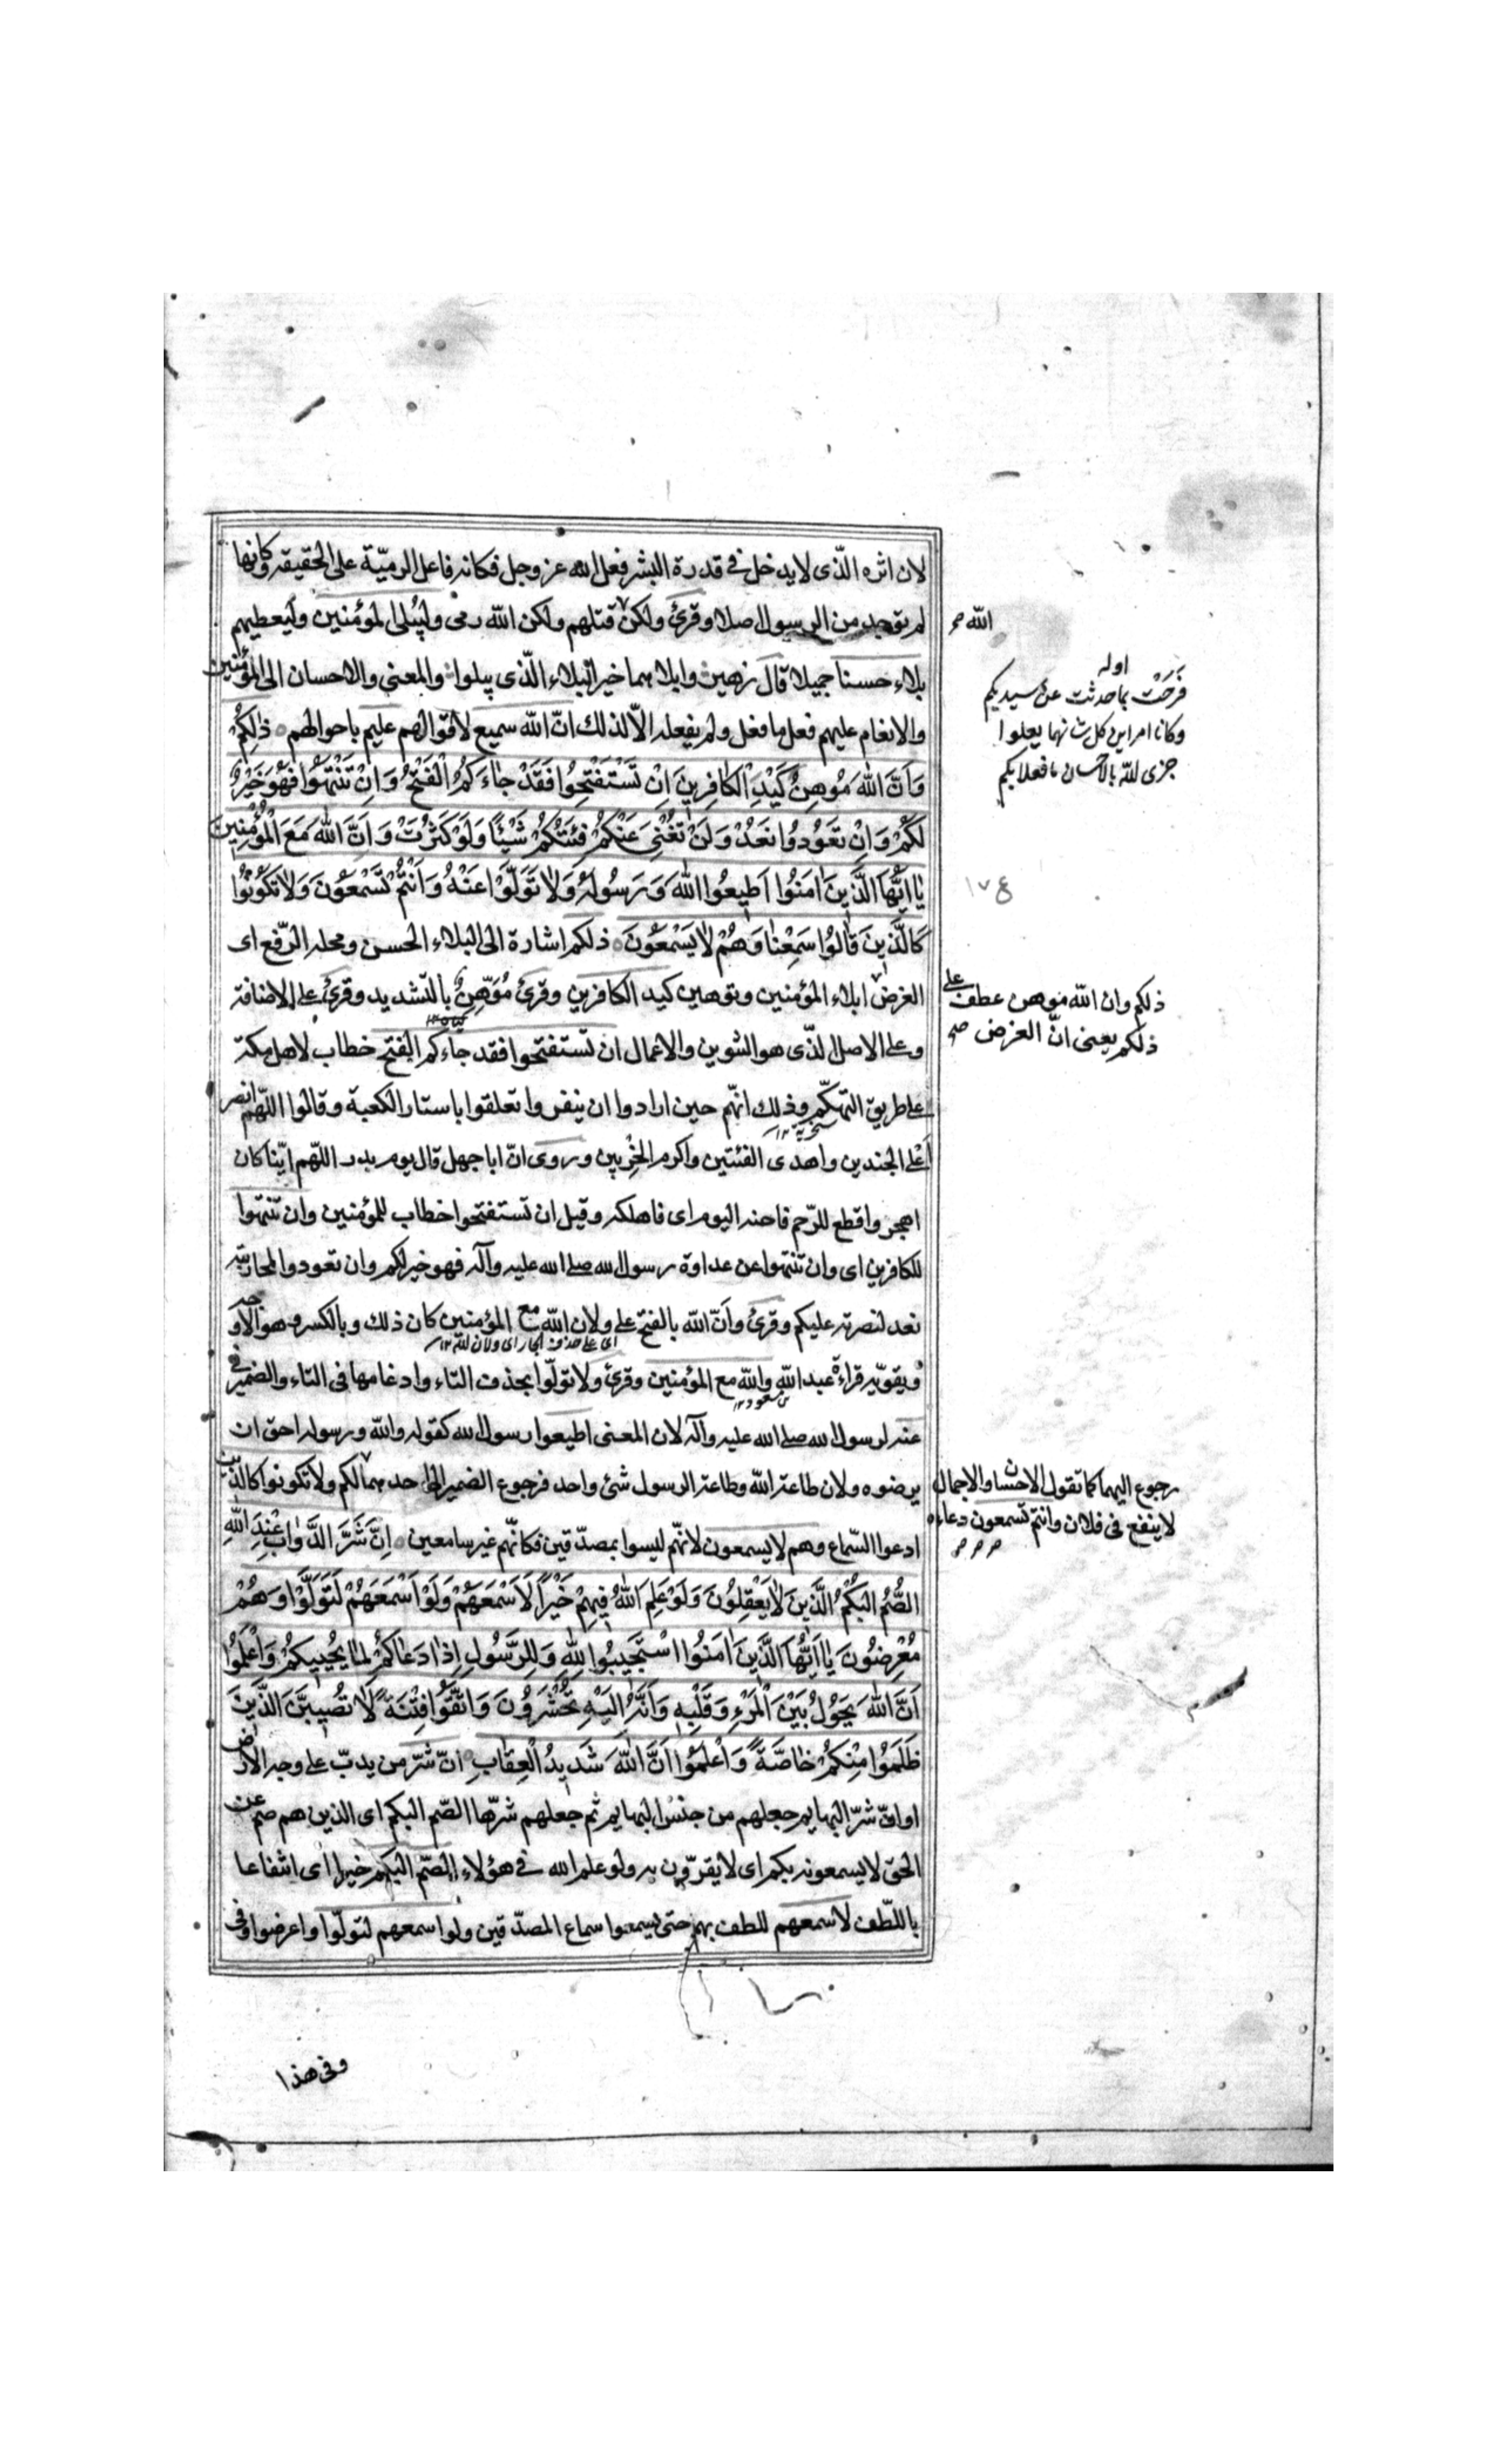 لان اثره الّذى لا يدخل فى قدرة البشر فعل الله عز وجل فكانه فاعل الرميّة على الحقيقه وكانها
لم توجد من الرسول اصلا وقرئ ولكن قتلهم ولكن الله رمى وليُبلى المؤمنين وليعطيهم
بلاء حسنا جميلا قال زهير وابلاهما خير البلاء الّذى يبلوا والمعنى والاحسان الى المؤمنين
والانعام عليهم فعل ما فعل ولم يفعله الّا لذلك انّ الله سميع لاقوالهم عليم باحوالهم ذٰلِكُمْ
وَاَنَّ اللهَ مُوهِنٌ كَيْدِ الْكٰافِرِينَ اِنْ تَسْتَفْتِحُوا فَقَدْ جٰاءَكُمُ الْفَتْحُ وَاِنْ تَنْتَهُوا فَهُوَ خَيْرٌ
لَكُمْ وَاِنْ تَعُودُوا نَعُدْ وَلَنْ تُغْنِىَ عَنْكُمْ فِئَتُكُمْ شَيْئًا وَلَوْ كَثُرَتْ وَاَنَّ اللهَ مَعَ الْمُؤْمِنِينَ
يٰا اَيُّهَا الَّذِينَ اٰمَنُوا اَطِيعُوا اللهَ وَرَسُولَهُ وَلٰا تَوَلَّوْا عَنْهُ وَاَنْتُمْ تَسْمَعُونَ وَلٰا تَكُونُوا
كَالَّذِينَ قٰالُوا سَمِعْنٰا وَهُمْ لٰا يَسْمَعُونَ ذلكم اشارة الى البلاء الحسن ومحله الرّفع اى
الغرض ابلاء المؤمنين وتوهين كيد الكافرين وقرئ مُوَهِّنٌ بالتشديد وقرئ على الاضافة
وعلى الاصل الذّى هو التنوين والاعمال ان تستفتحوا فقد جاءكم الفتح خطاب لاهل مكة
على طريق التهكّم وذلك انهّم حين ارادوا ان ينفروا تعلقوا باستار الكعبة وقالوا اللّهم انصر
اَعْلى الجندين واهدى الفئتين واكرم الحزبين وروى انّ ابا جهل قال يوم بدر اللّهم ايّنا كان
اهجر واقطع للرّحم فاحنه اليوم اى فاهلكه وقيل ان تستفتحوا خطاب للمؤمنين وان تنتهوا
للكافرين اى وان تنتهوا عن عداوة رسول الله صلى الله عليه وآله فهو خير لكم وان تعودوا لمحاربته
نعد لنصرته عليكم وقرئ وأنّ الله بالفتح على ولان الله مع المؤمنين كان ذلك وبالكسر وهو الاوجه
اى على حذف الجار اى ولان الله ١٢
ويقوّيه قراءة عبد الله والله مع المؤمنين وقرئ ولا تولّوا بحذف التاء وادغامها فى التاء والضمير فى
بن مسعود ١٢
عنه لرسول الله صلى الله عليه وآله لان المعنى اطيعوا رسول الله كقوله والله ورسوله احق ان
يرضوه ولان طاعة الله وطاعة الرسول شئ واحد فرجوع الضمير الى احدهما لكم ولا تكونوا كالذّين
ادعوا السّماع وهم لا يسمعون لانهّم ليسوا بمصدّقين فكانهّم غير سامعين اِنَّ شَرَّ الدَّوٰابِّ عِنْدَ اللهِ
الصُّمُّ الْبُكْمُ الَّذِينَ لٰا يَعْقِلُونَ وَلَوْ عَلِمَ اللهُ فِيهِمْ خَيْرًا لَاَسْمَعَهُمْ وَلَوْ اَسْمَعَهُمْ لَتَوَلَّوْا وَهُمْ
مُعْرِضُونَ يٰا اَيُّهَا الَّذِينَ اٰمَنُوا اسْتَجِيبُوا لِلّٰهِ وَلِلرَّسُولِ اِذٰا دَعٰاكُمْ لِمٰا يُحْيِيكُمْ وَاعْلَمُوا
اَنَّ اللهَ يَحُولُ بَيْنَ الْمَرْءِ وَقَلْبِهِ وَاَنَّهُ اِلَيْهِ تُحْشَرُونَ وَاتَّقُوا فِتْنَةً لٰا تُصِيبَنَّ الَّذِينَ
ظَلَمُوا مِنْكُمْ خٰاصَّةً وَاعْلَمُوا اَنَّ اللهَ شَدِيدُ الْعِقٰابِ انّ شرّ من يدبّ على وجه الارض
او انّ شرّ البهايم جعلهم من جنس البهايم ثم جعلهم شرّها الصّم البكم اى الذين هم صم عن
الحق لا يسمعونه بكم اى لا يقرّون به ولو علم الله فى هؤلاء الصّم البكم خيرا اى انتفاعا
باللّطف لاسمعهم للطف بهم حتى يسمعوا سماع المصدّقين ولو اسمعهم لتولّوا واعرضوا وفى
وفى هذا
الله
اوله
فرحت بما حدثت عن سيديكم
وكانا امراين كل شانهما يعلوا
جزى الله بالاحسان ما فعلا بكم
١٧٤
ذلكم وان الله موهن عطف على
ذلكم يعنى انّ الغرض صح
رجوع اليهما كما تقول الاحسان والاجمال
لا ينفع فى فلان وانتم تسمعون دعاءه